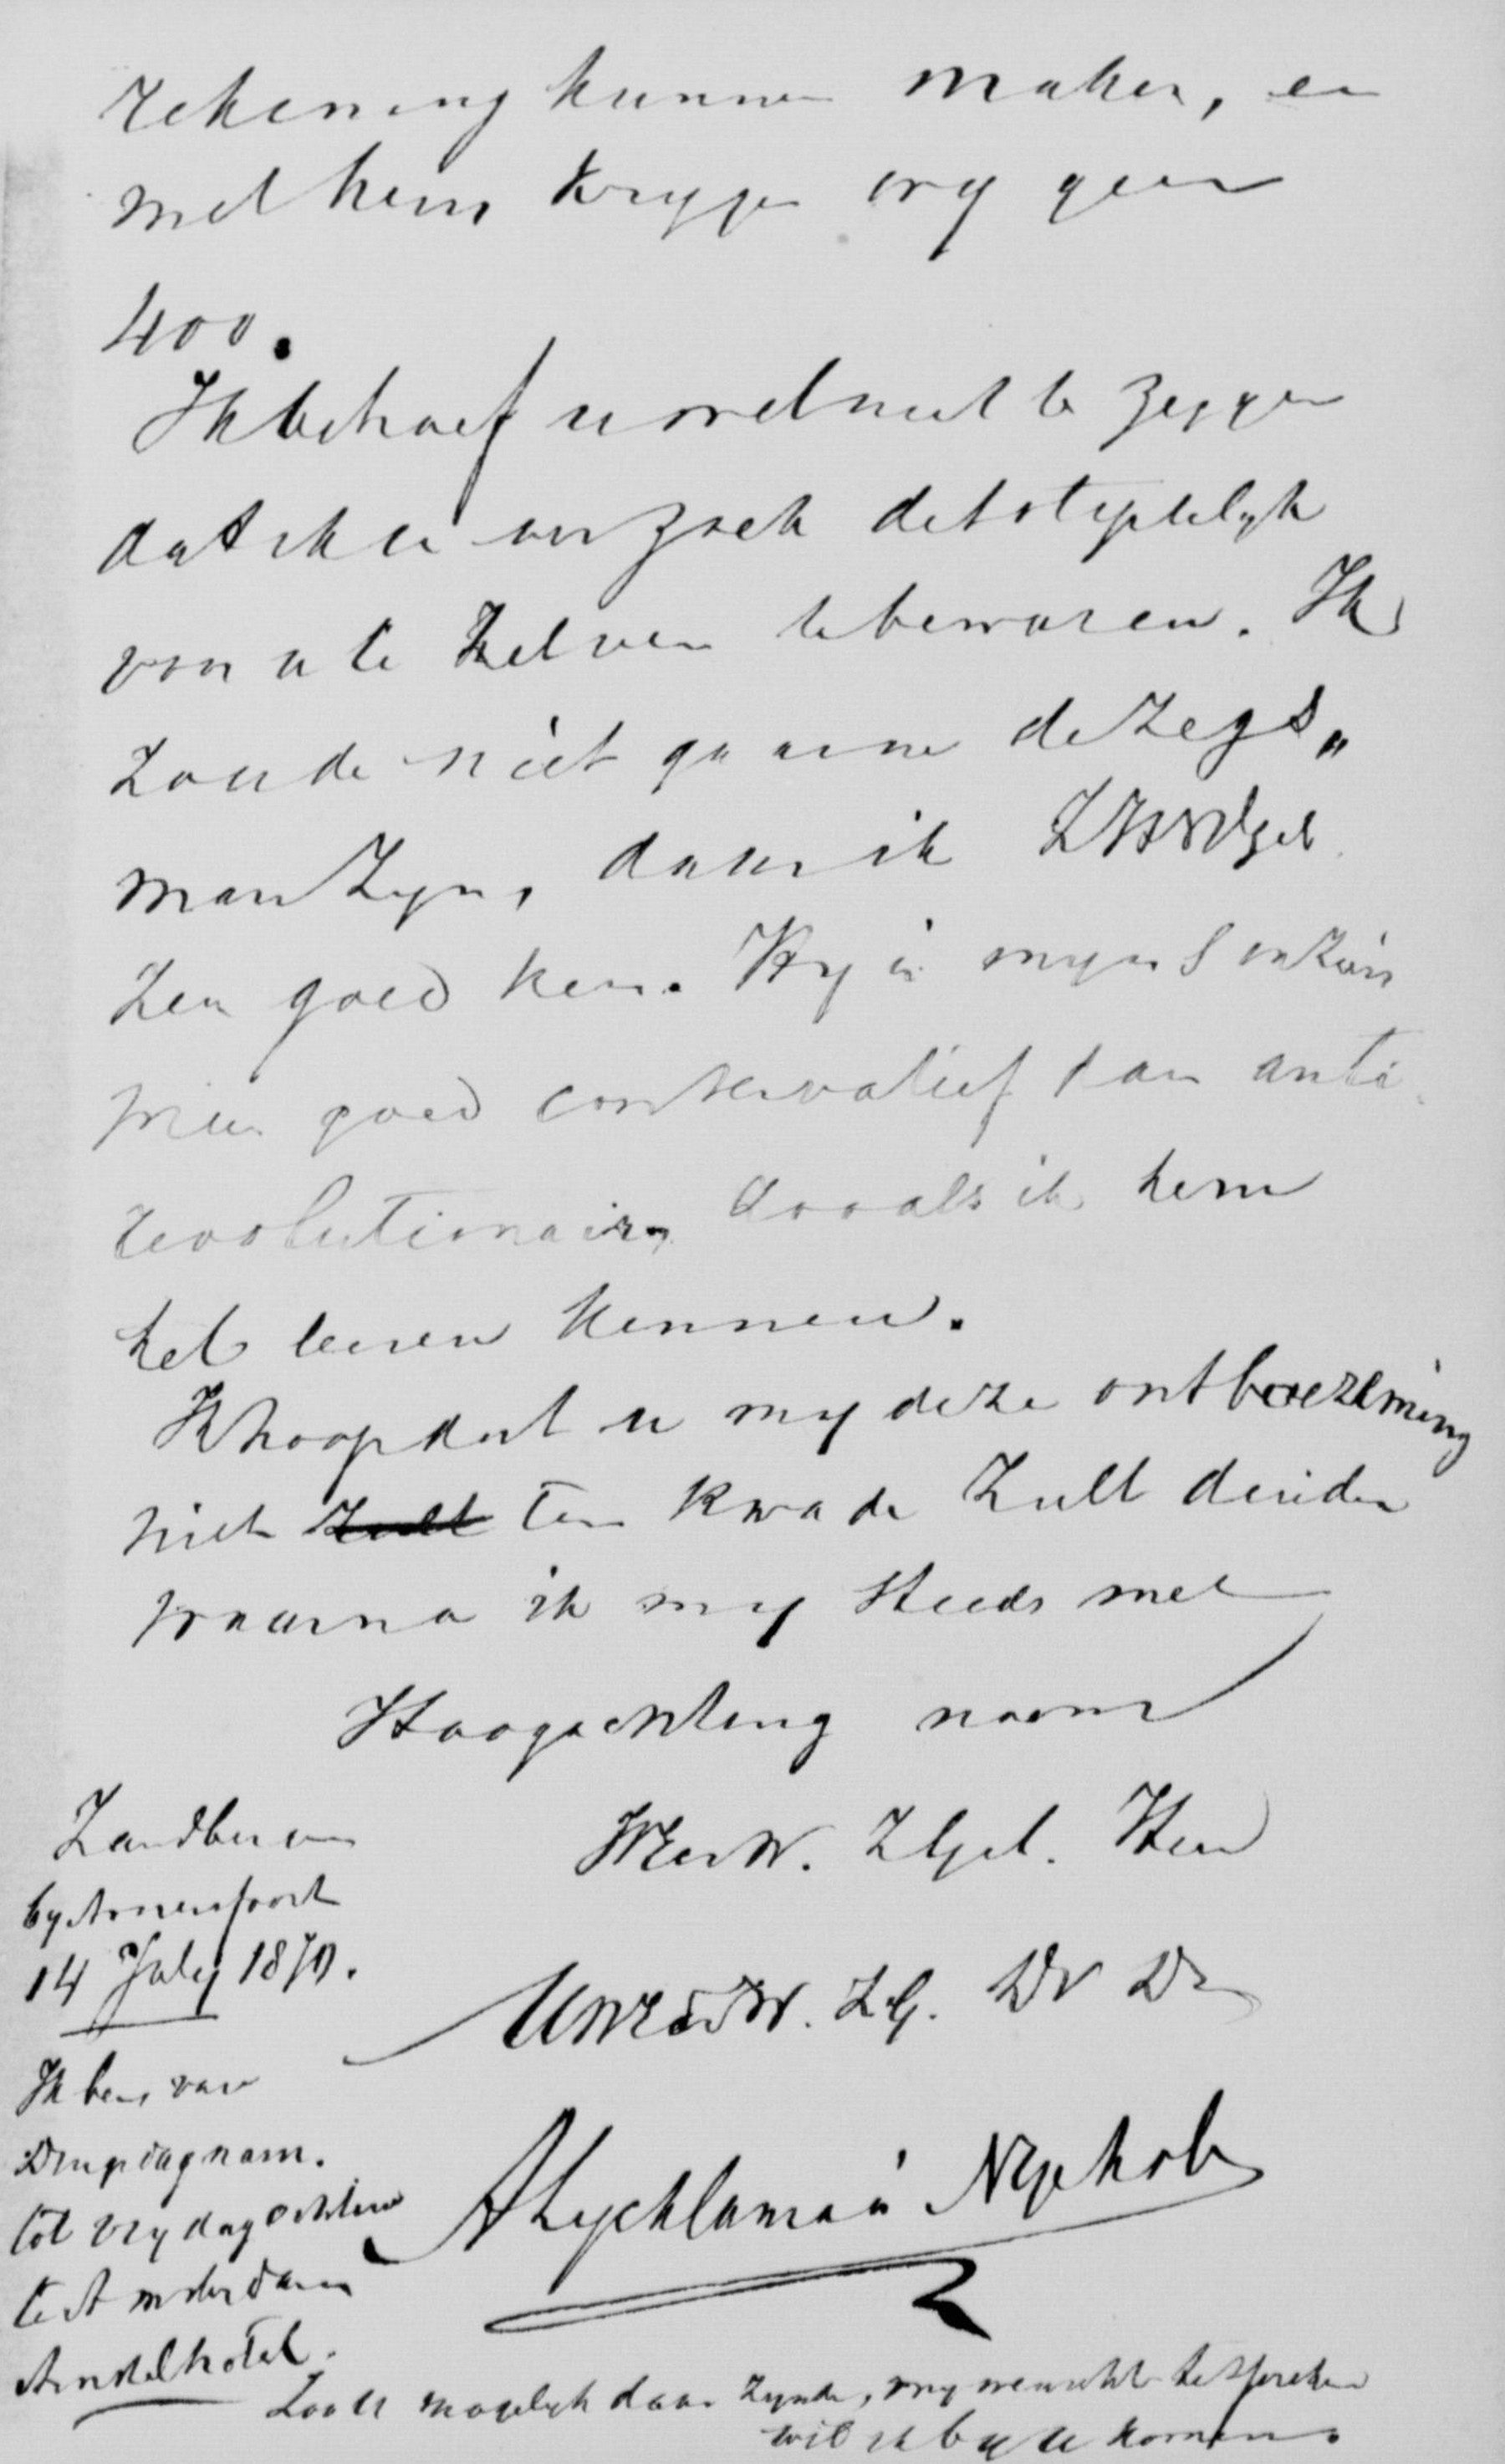 rekening kunnen maken, en
met hem krygen wy geen
400.
Ik behoef u wel niet te zeggen
dat ik u verzoek dit stiptelyk
voor u te zelven te bewaren. Ik
zoude niet gaarne de zegs„
man zyn, daar ik ZHWelgeb
zeer goed ken. Hy is myns inziens
meer goed conservatief dan anti
revolutionair, zooals ik hem
heb leeren kennen.
Ik hoop dat u my deze ontboezeming
niet ten kwade zult duiden
waarna ik my steeds met
Hoogachting noem
WelEerW. ZGel. Heer
UWEerW. ZG. DW Dr
A Lycklama à Nyeholt
Zandbergen
by Amersfoort
14 July 1870.
Ik ben van
Dingsdag nam.
tot vrydag ochtend
te Amsterdam
Amstelhotel.
Zoo u mogelyk daar zynde, my wenscht te spreken
wil ik by u komen.